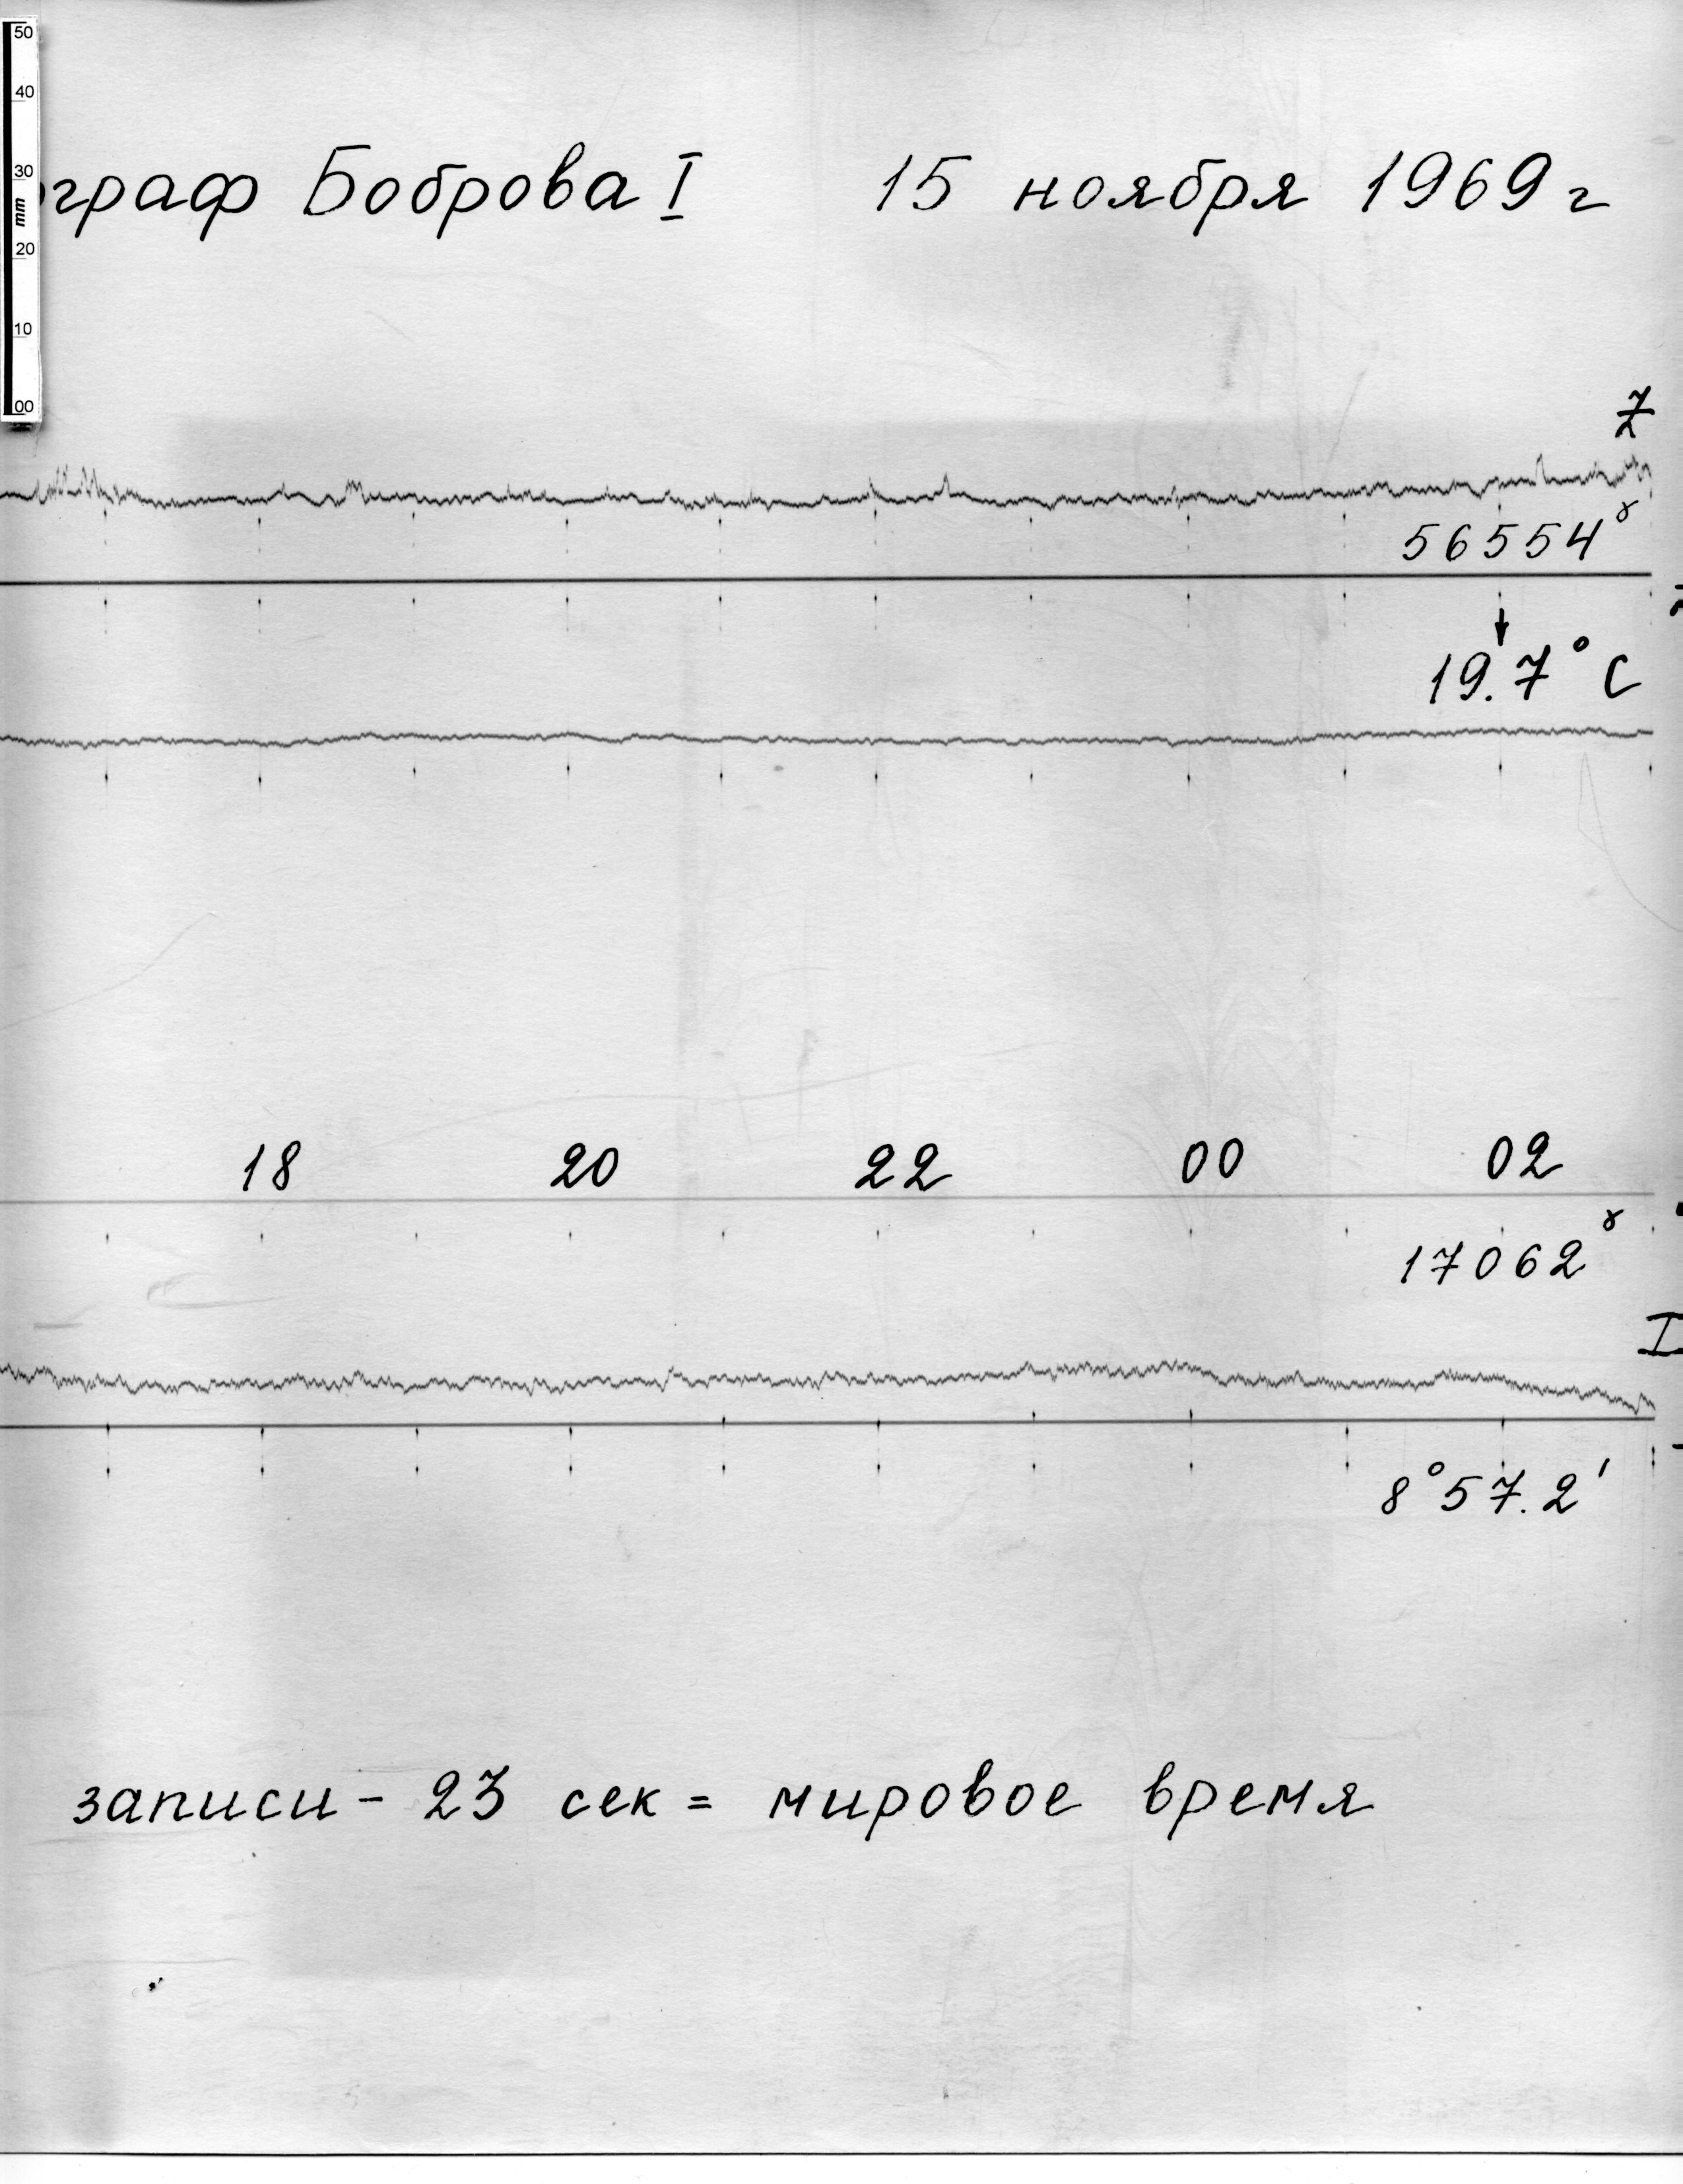 50
40
30
mm
20
10
00
ограф Боброва I 15 ноября 1969 г
Z
56554 γ
19.7° C
18 20 22 00 02
17062 γ
8° 57.2'
записи - 23 сек = мировое время